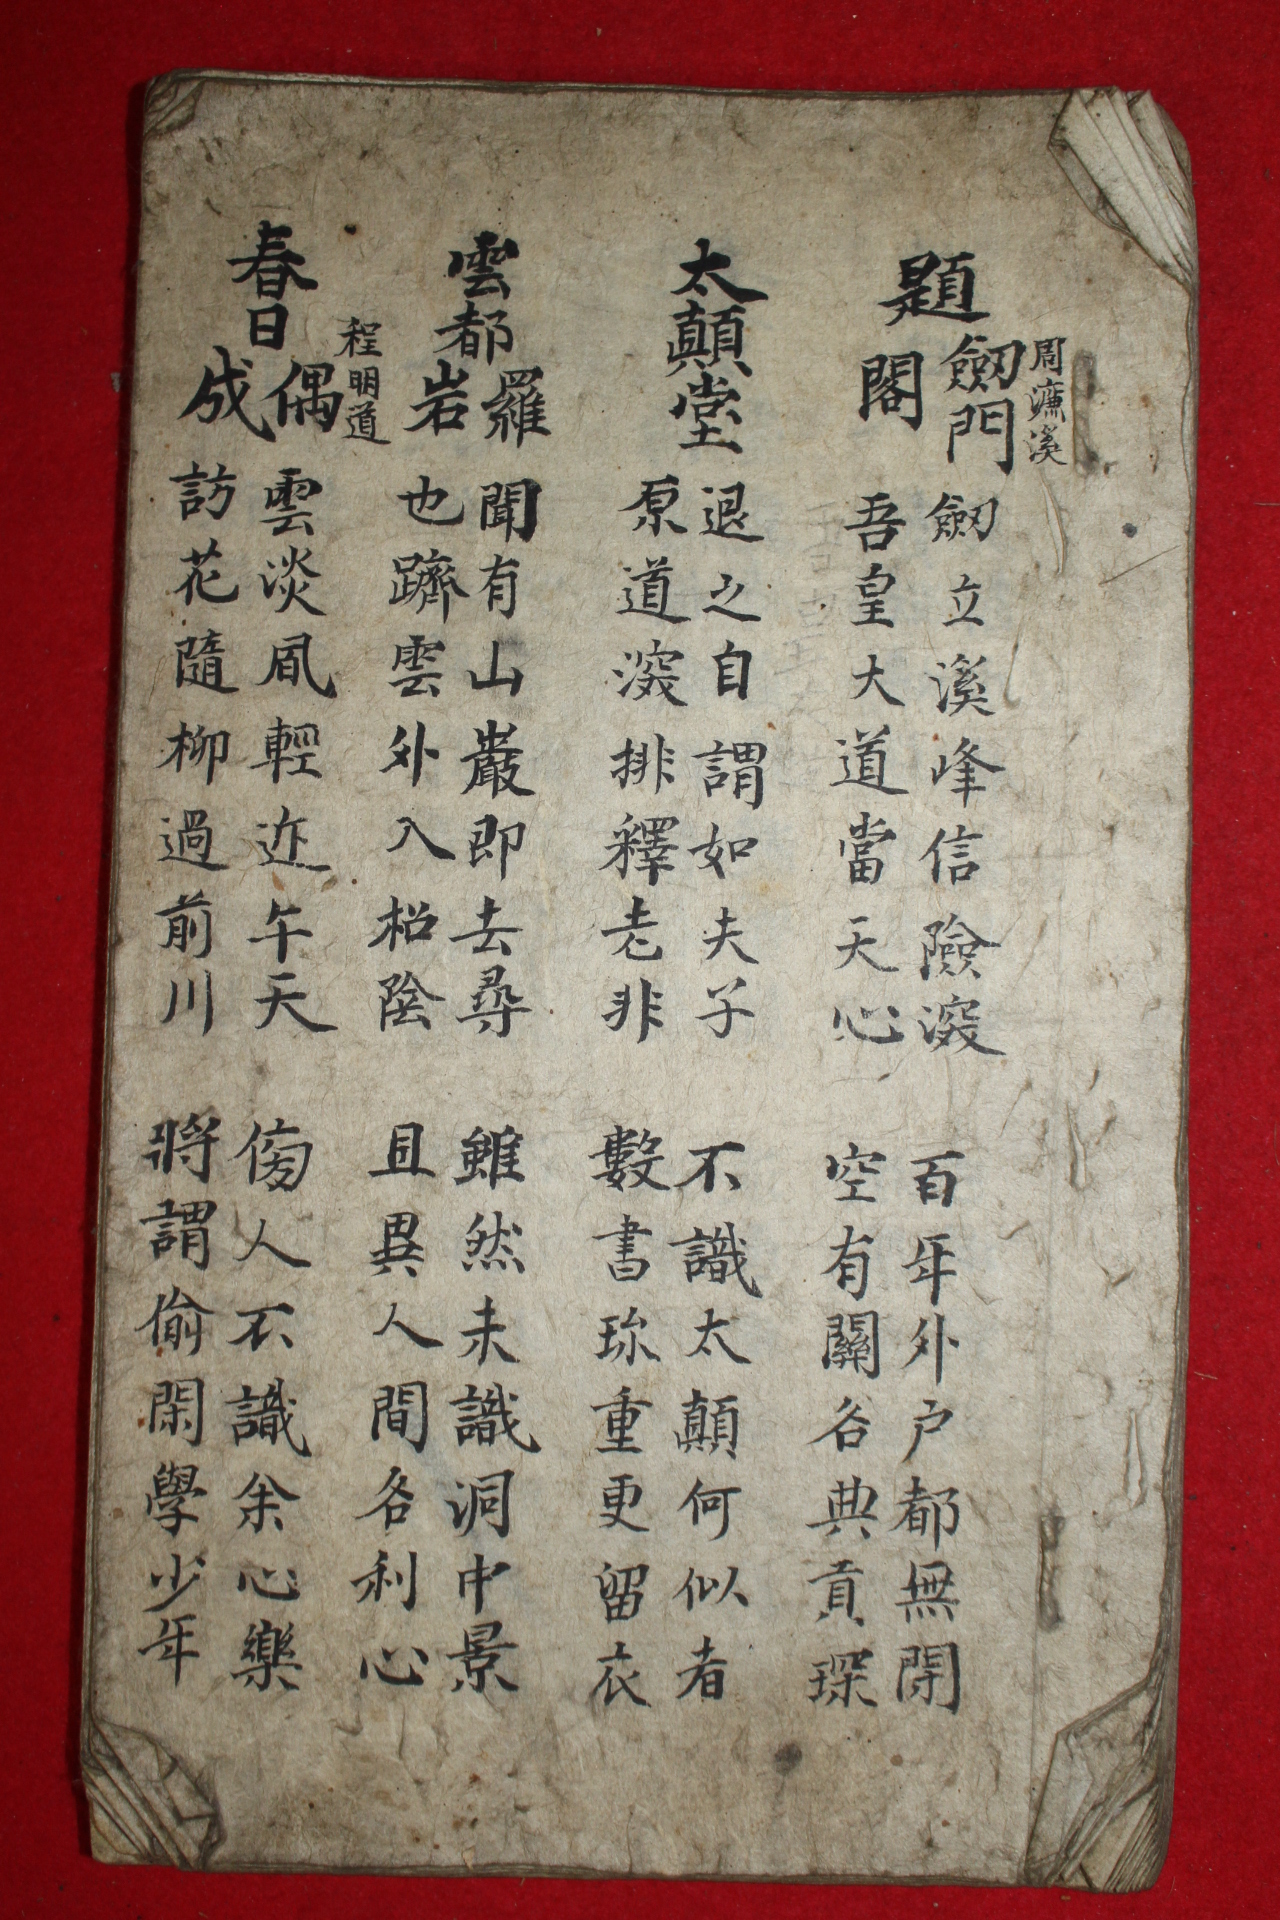 周濂溪
題劒門閣
劒立溪峰信險深 百年外户都無閉
吾皇大道當天心 空有關谷典貢琛
太顛堂
退之自謂如夫子 不識太顛何似者
原道深排釋老非 數書珎重更留衣
雲都羅岩
聞有山巖即去尋 雖然未識洞中景
也躋雲外入松陰 且異人間各利心
程明道
春日偶成
雲淡風輕近午天 傍人不識余心樂
訪花隨柳過前川 將謂偷閑學少年